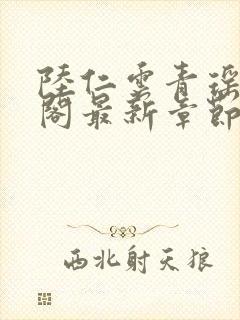 陸仁雲青瑶
閣最新章節
西北射天狼